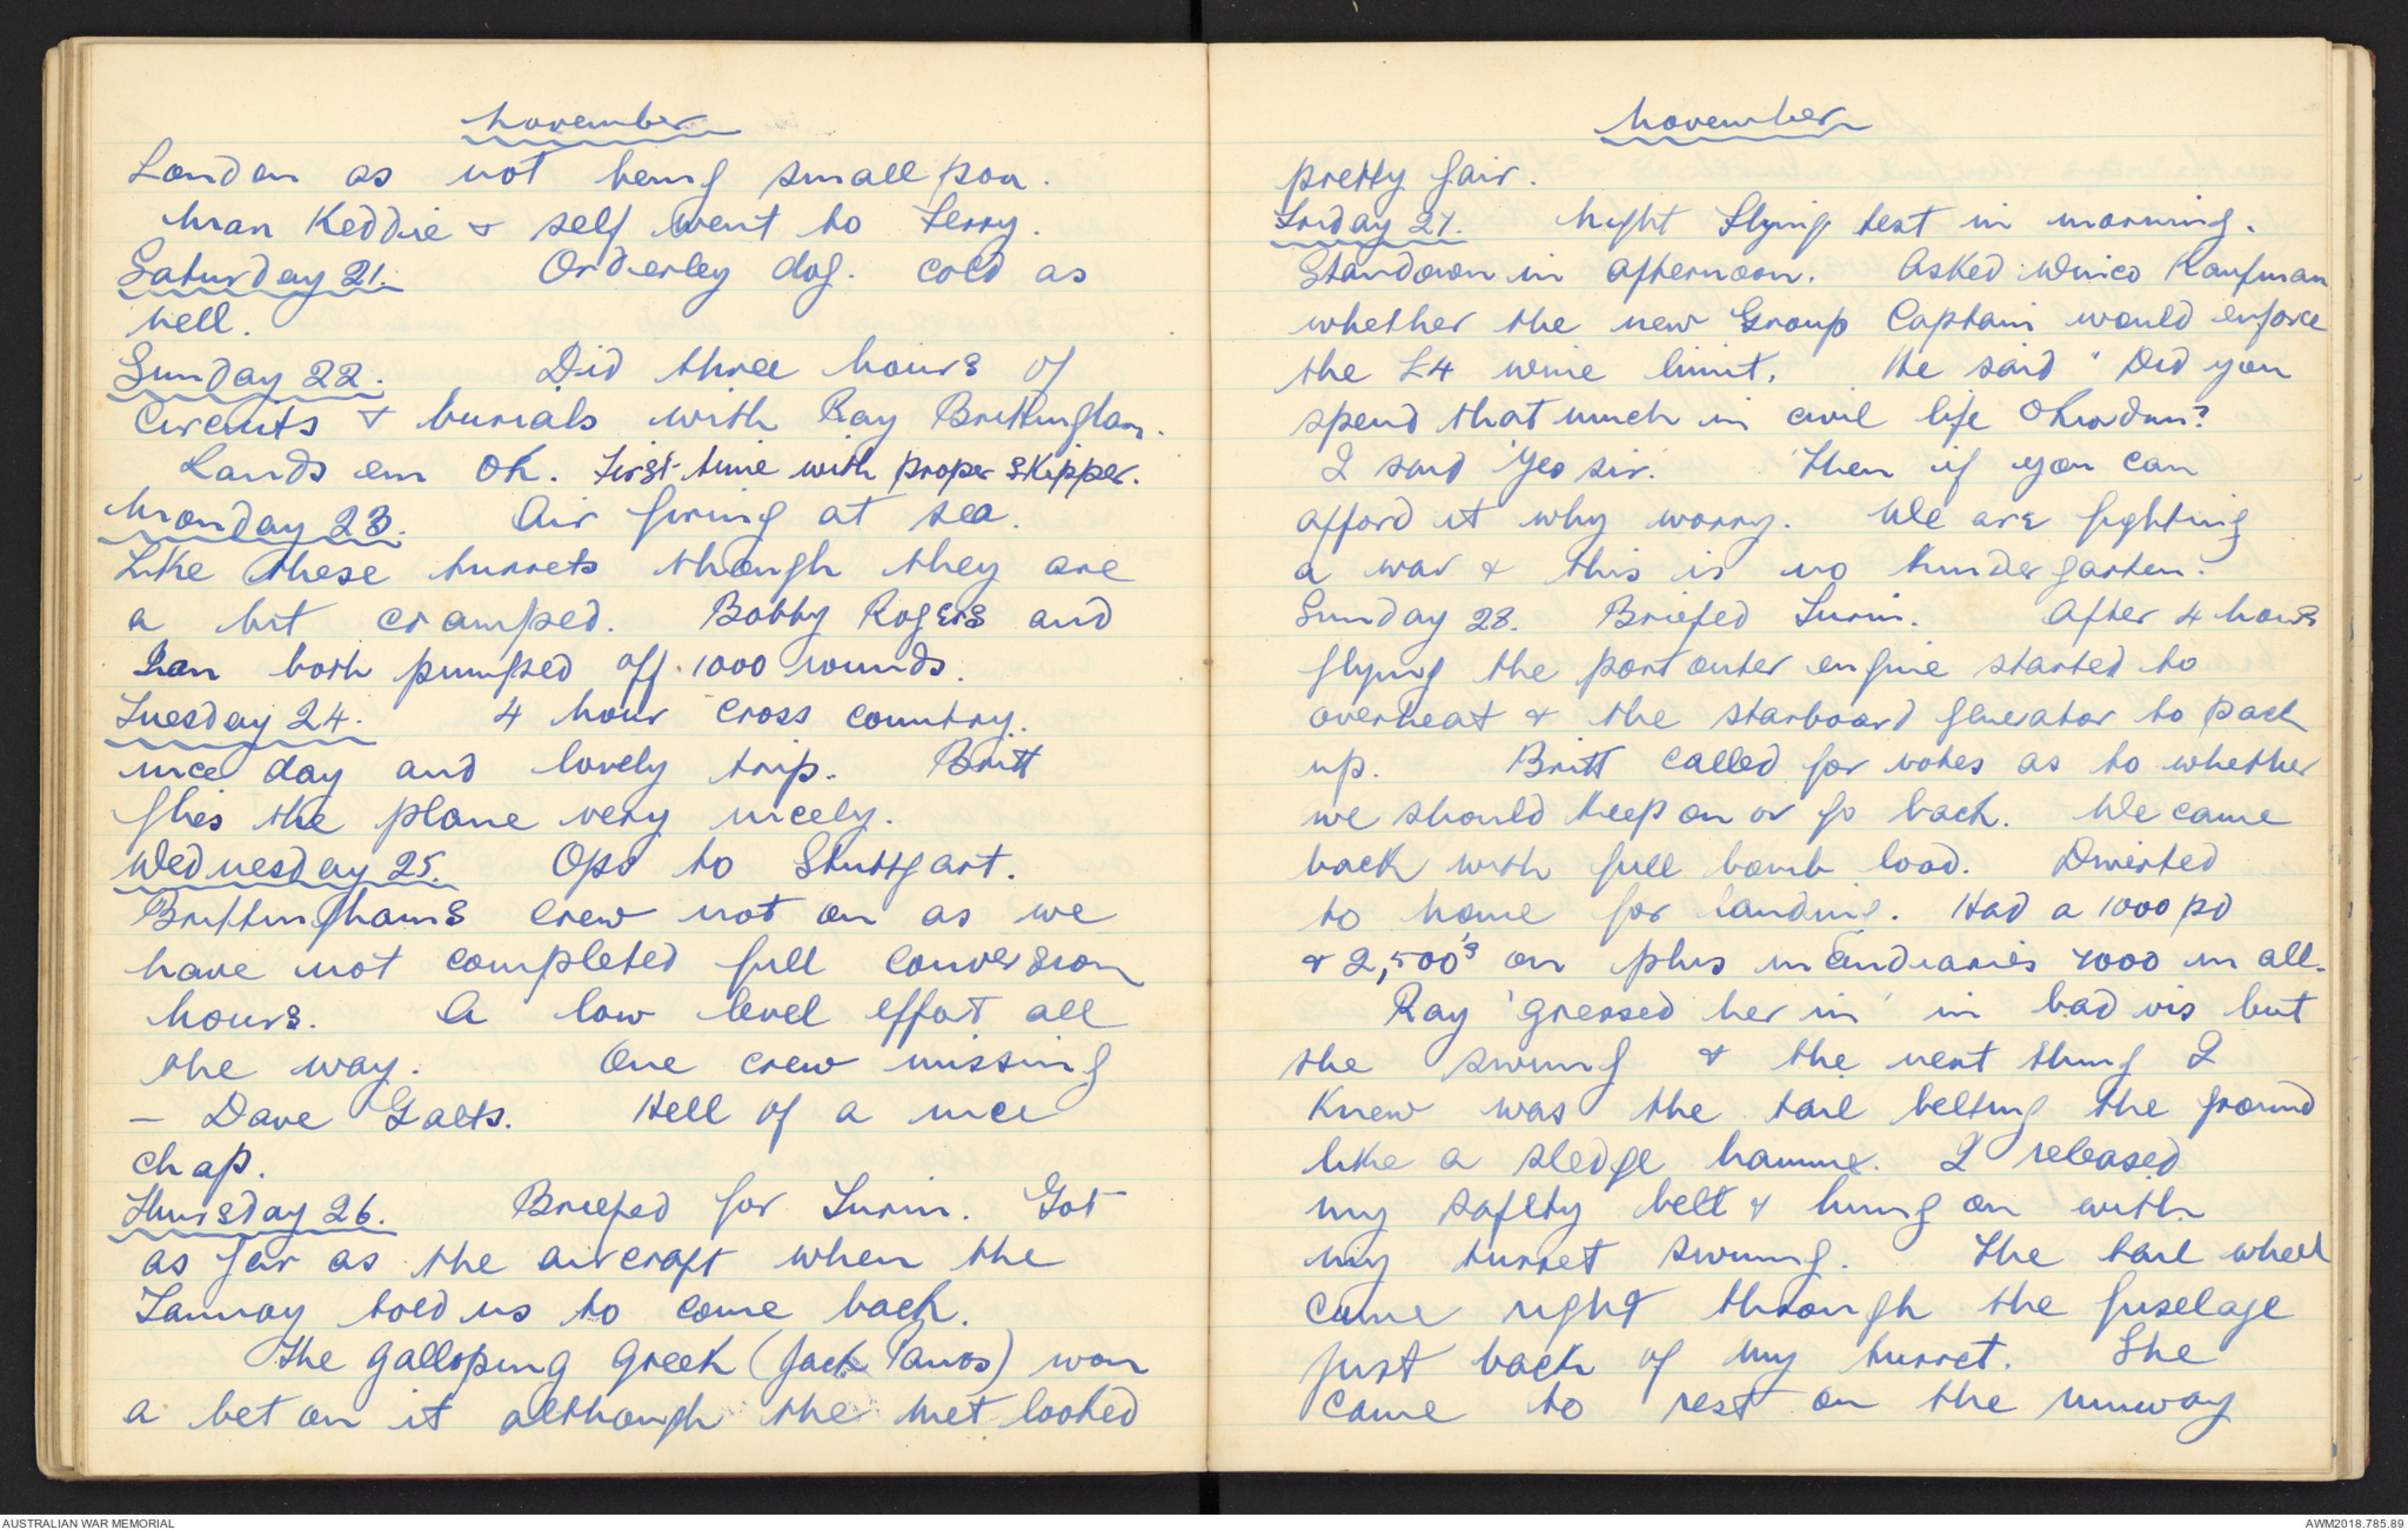 November
London as not being small pox.
Max Keddie & self went to Ferry.
Saturday 21. Orderley dog. Cold as
hell.
Sunday 22. Did three hours of
circuits & burials with Ray Brittingham.
Lands em OK. First time with proper skipper.
Monday 23. Air firing at sea.
Like these turrets though they are
a bit cramped. Bobby Rogers and
Ian both pumped off 1000 rounds.
Tuesday 24. 4 hour cross country.
nice day and lovely trip. Britt
flies the plane very nicely.
Wednesday 25. Ops to Stuttgart.
Brittinghams crew not on as we
have not completed full conversion
hours. A low level effort all
the way. One crew missing
– Dave Galts. Hell of a nice
chap.
Thursday 26. Briefed for Turin. Got
as far as the aircraft when the
Tannoy told us to come back.
The Galloping Greek (Jack Panos) won
a bet on it although the met looked
November
pretty fair.
Friday 27. Night flying test in morning.
Standown in afternoon. Asked Winco Kaufman
whether the new Group Captain would enforce
the £4 wine limit. He said "Did you
spend that much in civil life
I said 'yes sir.' 'Then if you can
afford it why worry. We are fighting
a war & this is no kindergarten.'
Sunday 28. Briefed Turin. After 4 hours
flying the port outer engine started to
overheat & the starboard generator to pack
up. Britt called for votes as to whether
we should keep on or go back. We came
back with full bomb load. Diverted
to home for landing. Had a 1000 pd
& 2,500's on plus incendiaries 4000 in all.
Ray 'greased her in' in bad vis but
she swung & the next thing I
knew was the tail belting the ground
like a sledge hamme. I released
my safety belt & hung on with
my turret swung. The tail wheel
came right through the fuselage
just back of my turret. She
came to rest on the runway
AUSTRALIAN WAR MEMORIAL
AWM2018.785.89